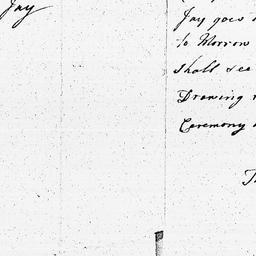 Jay
Jay goes
to Morrow
shall see
Drawing
Ceremony